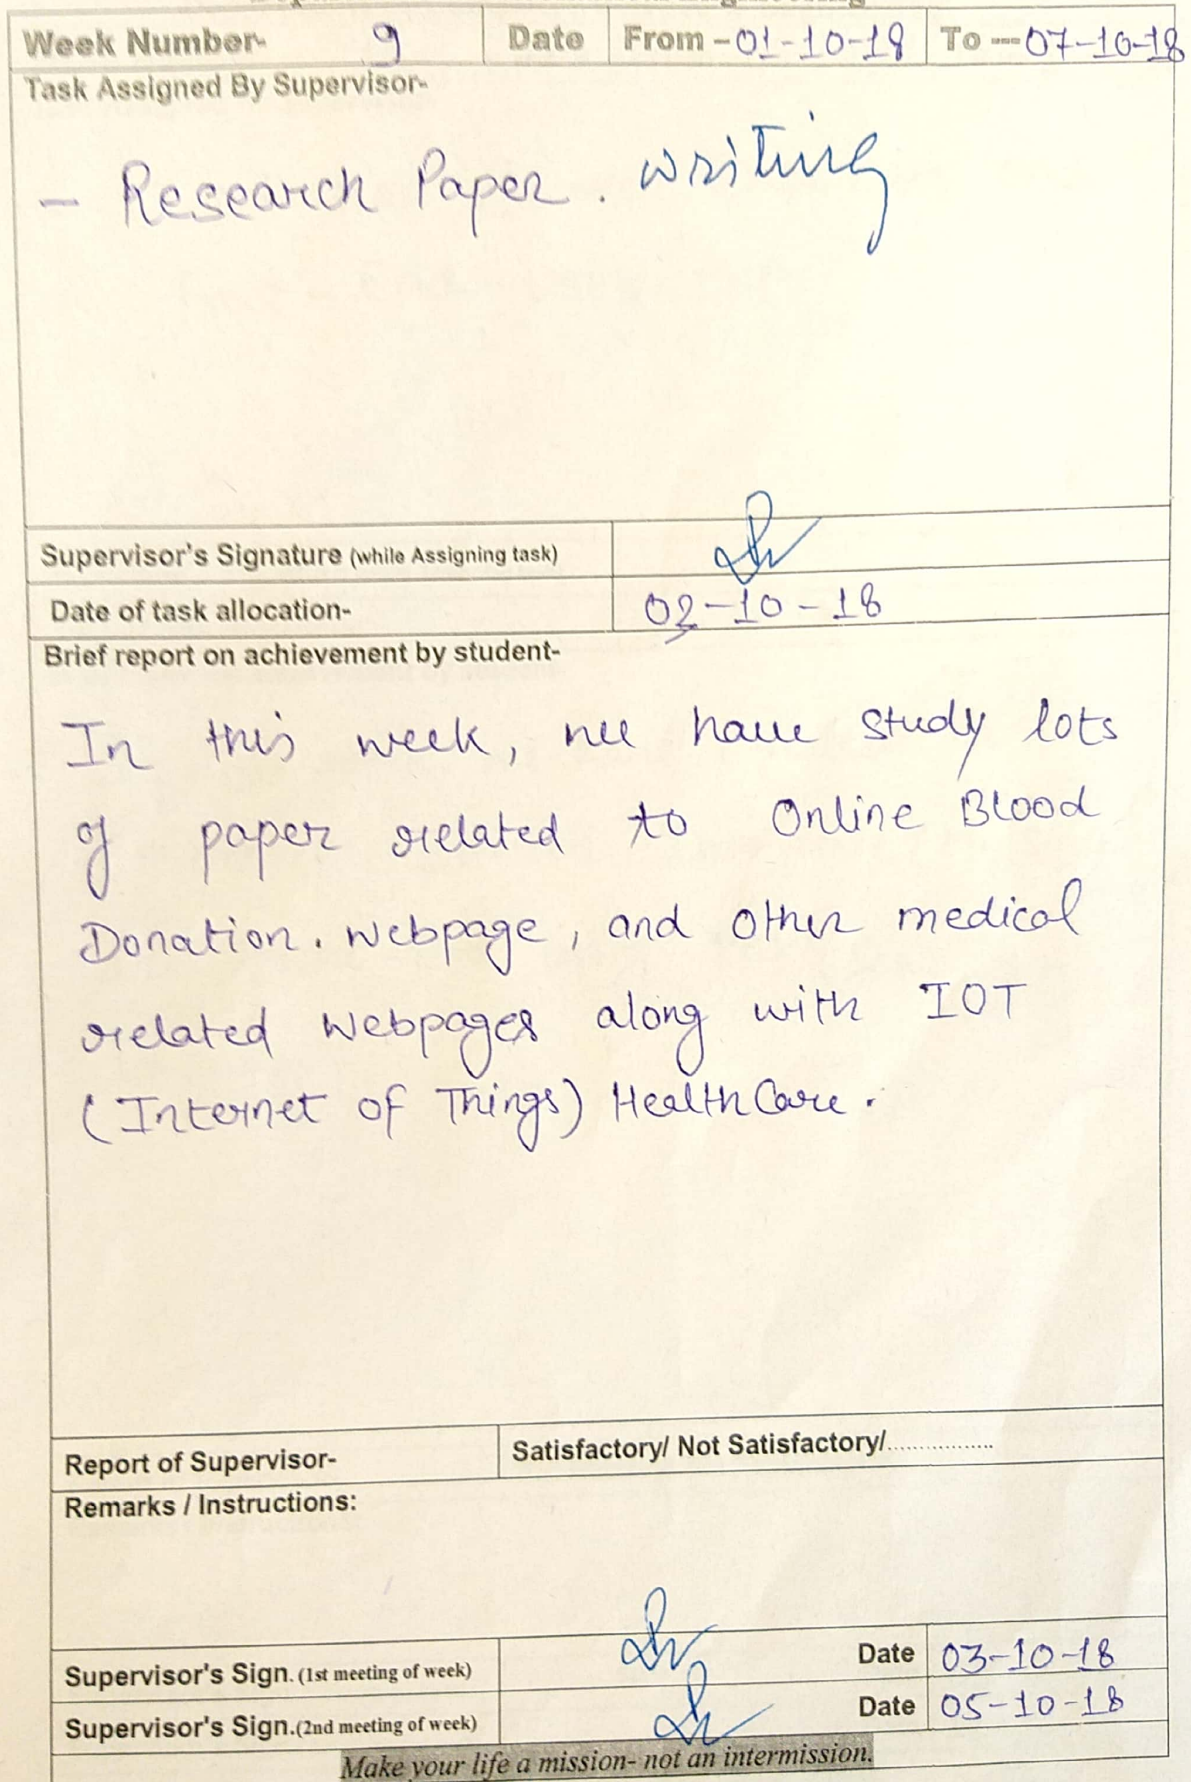 Week Number- 9 Date From - 01-10-18 To --- 07-10-18
Task Assigned By Supervisor-
- Research Paper. writing
Supervisor's Signature (while Assigning task)
Date of task allocation- 02-10-18
Brief report on achievement by student-
In this week, we have study lots
of paper related to Online Blood
Donation. Webpage, and other medical
related Webpages along with IOT
(Internet of Things) HealthCare.
Report of Supervisor- Satisfactory/ Not Satisfactory/..................
Remarks / Instructions:
Supervisor's Sign. (1st meeting of week) Date 03-10-18
Supervisor's Sign.(2nd meeting of week) Date 05-10-18
Make your life a mission- not an intermission.